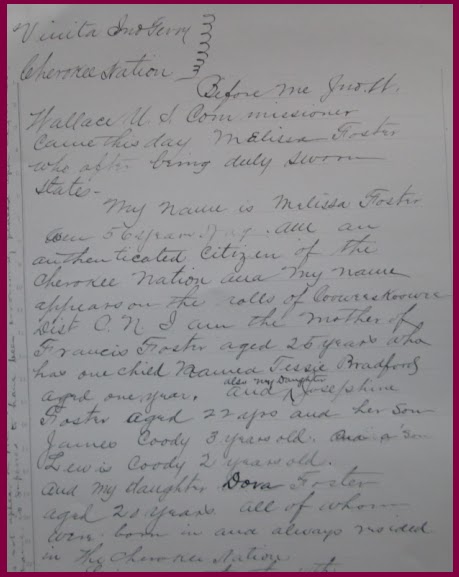 Vinita Ind Terry
Cherokee Nation
Before me Jno. W.
Wallace U S Commissioner
came this day Melissa Foster
who after being duly sworn
states-
My name is Melissa Foster
56 years. am an
authenticated Citizen of the
Cherokee Nation and My name
appears on the rolls of Cooweskoowee
Dist C. N I am the Mother of
Francis Foster aged 26 years who
has one child Named Tessie Bradford
aged one year. and also my Daughter Josephine
Foster aged 22 yrs and her son
James Coody 3 years old. and a son
Lewis Coody 2 years old.
and My daughter Dora Foster
aged 20 years all of whom
were born in and always resided
in the Cherokee Nation